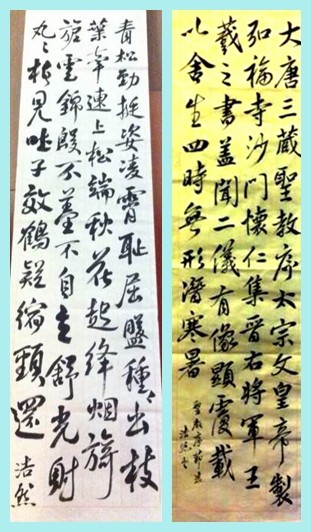 青松勁挺姿凌霄恥屈盤種種出枝
葉牽連上松端秋花起絳烟旖
旎雲錦殷不羞不自立舒光射
丸丸柏見吐子效鶴疑縮頸還
浩然
大唐三藏聖教序太宗文皇帝製
弘福寺沙門懷仁集晉右將軍王
羲之書蓋聞二儀有像顯覆載
以含生四時無形潛寒暑
聖教序節
浩然書